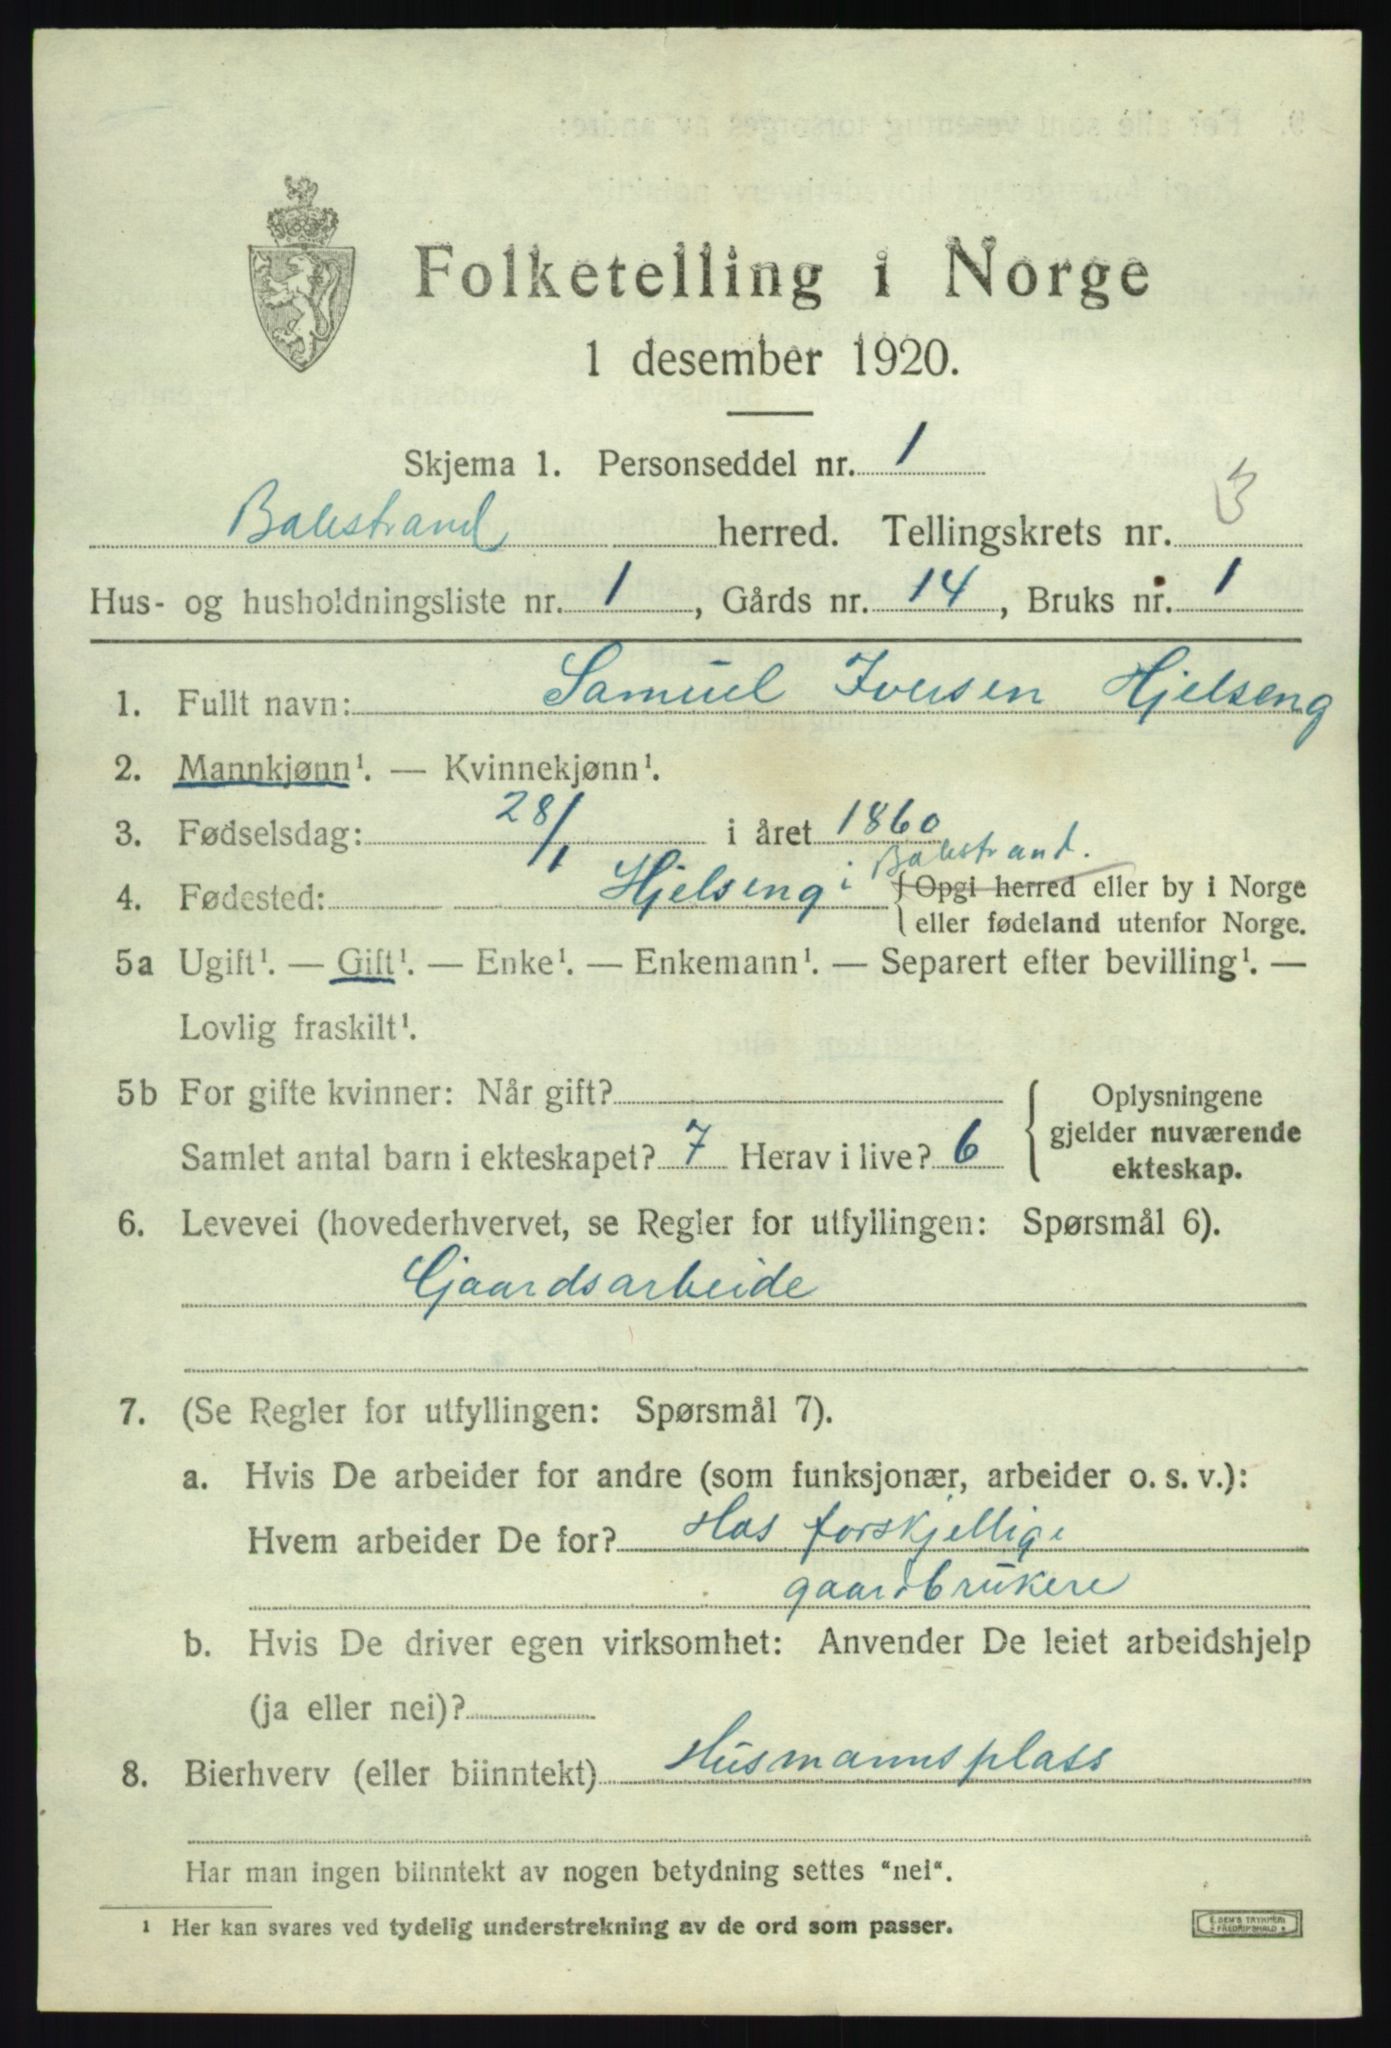 Folketelling i Norge
1 desember 1920.
Skjema 1. Personseddel nr. 1
Balestrand herred. Tellingskrets nr. 3
Hus- og husholdningsliste nr. 1, Gårds nr. 14, Bruks nr. 1
1. Fullt navn: Samuel Iversen Hjelseng
2. Mannkjønn¹. — Kvinnekjønn¹.
3. Fødselsdag: 28/1 i året 1860
4. Fødested: Hjelseng i Balestrand. {Opgi herred eller by i Norge
eller fødeland utenfor Norge.
5a Ugift¹. — Gift¹. — Enke¹. — Enkemann¹. — Separert efter bevilling¹. —
Lovlig fraskilt¹.
5b For gifte kvinner: Når gift? Oplysningene
gjelder nuværende
Samlet antal barn i ekteskapet? 7 Herav i live? 6 ekteskap.
6. Levevei (hovederhvervet, se Regler for utfyllingen: Spørsmål 6).
Gjaardsarbeide
7. (Se Regler for utfyllingen: Spørsmål 7).
a. Hvis De arbeider for andre (som funksjonær, arbeider o. s. v.):
Hvem arbeider De for? Hos forskjellige
gaardbrukere
b. Hvis De driver egen virksomhet: Anvender De leiet arbeidshjelp
(ja eller nei)?
8. Bierhverv (eller biinntekt) Husmannsplass
Har man ingen biinntekt av nogen betydning settes "nei".
¹ Her kan svares ved tydelig understrekning av de ord som passer.